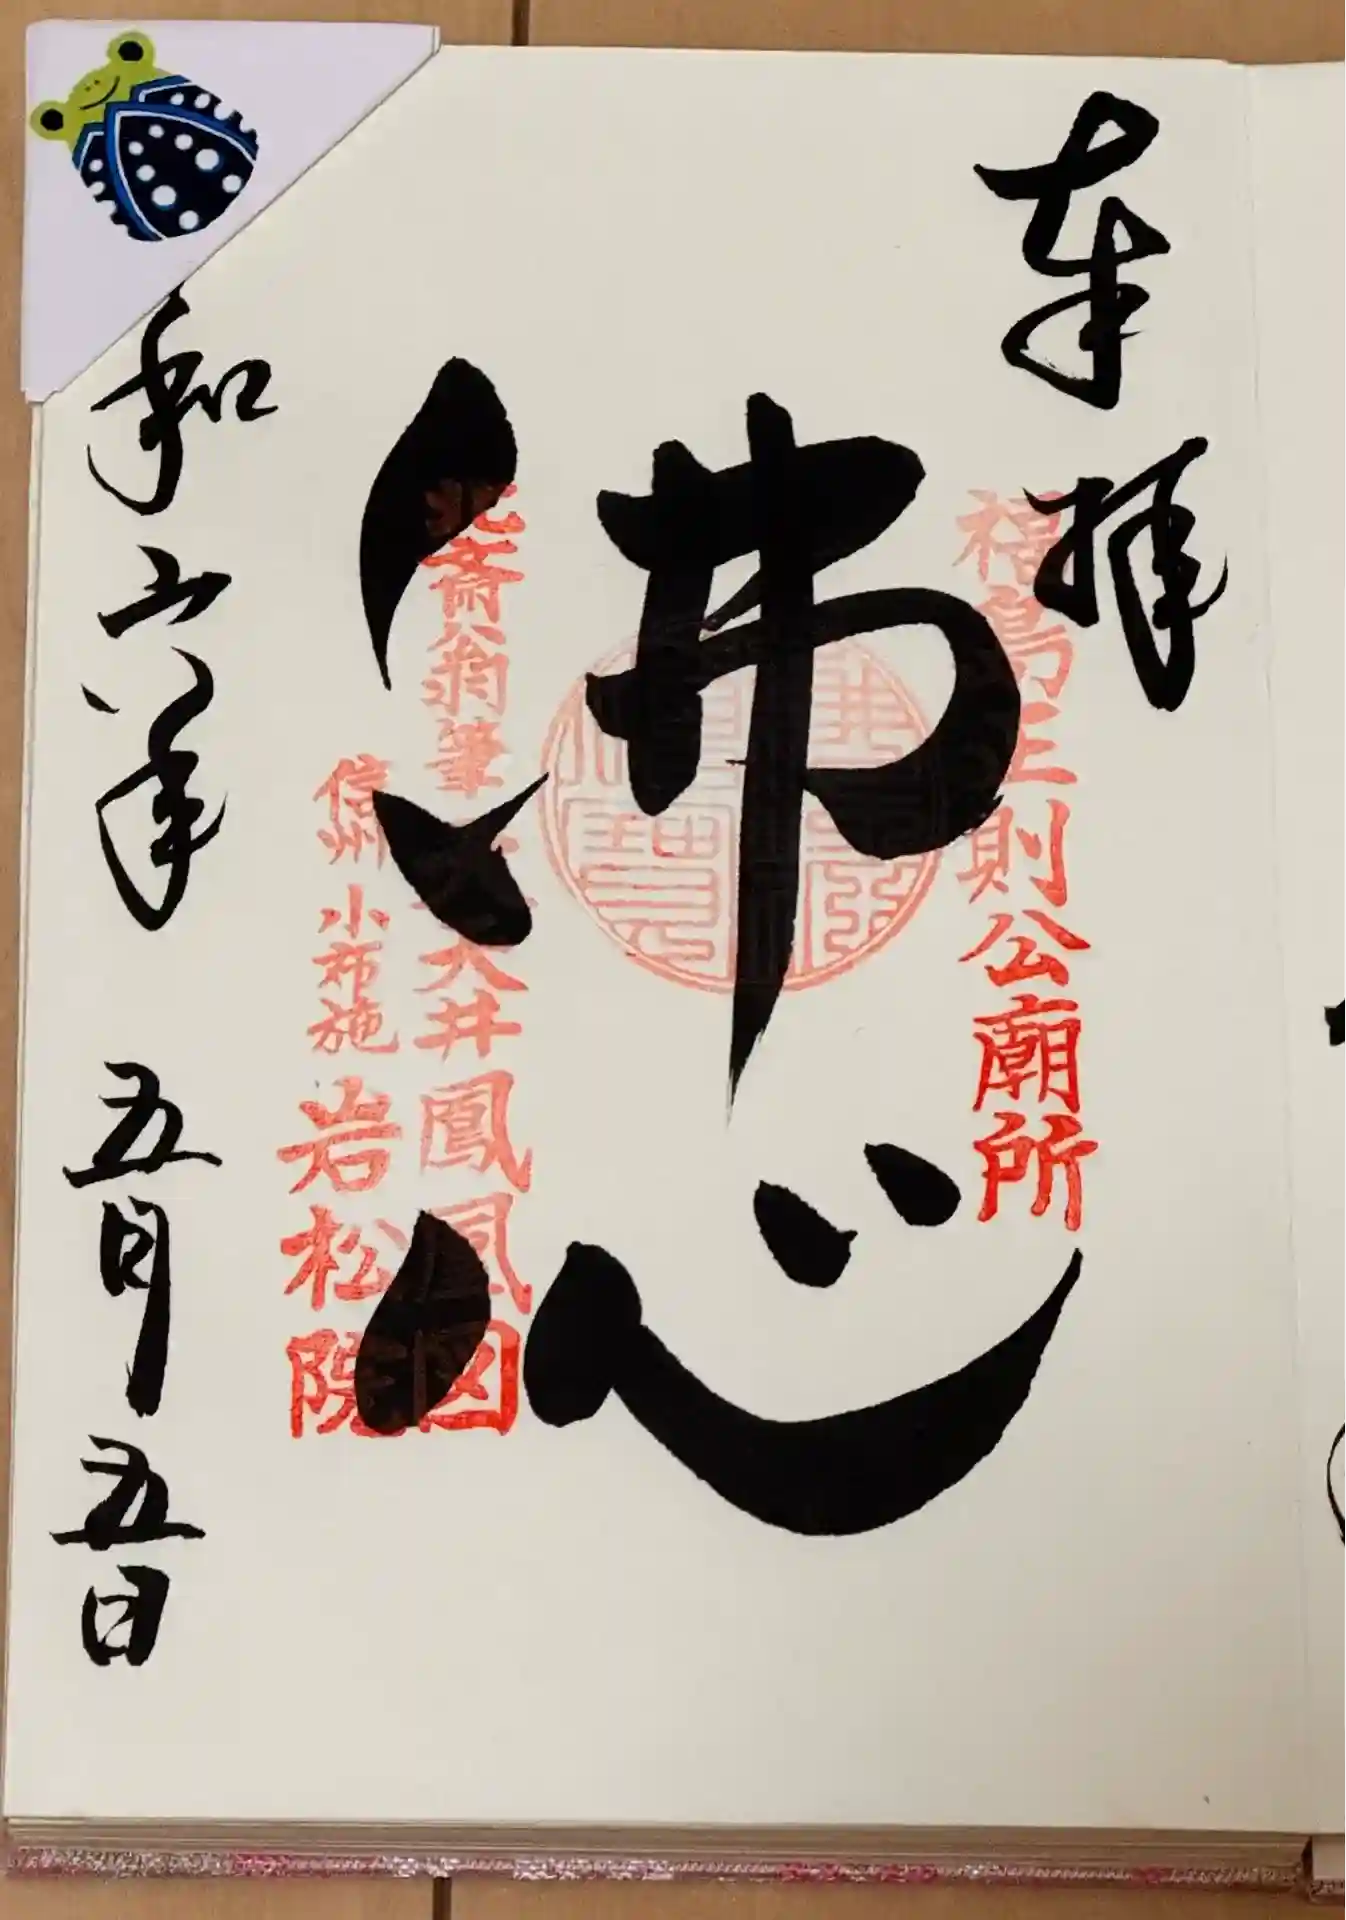 奉拝
福島正則公廟所
佛心
北斎翁筆
大井鳳凰図
信州 小布施 岩松院
和六年 五月五日